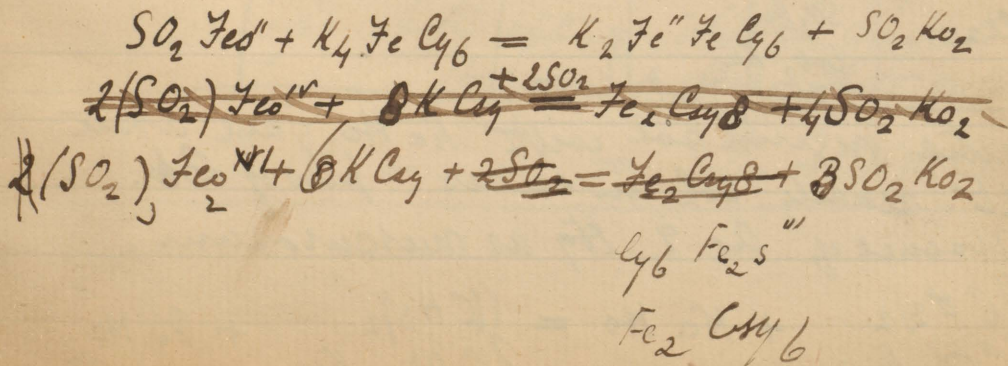 SO2 Feo" + K4 Fe Cy6 = K2 Fe" Fe Cy6 + SO2 Ko2
2(SO2) Feo + 8 K Csy + 2SO2 = Fe2 Csy8 + 4SO2 Ko2
(SO2)3 Feo2 + 6 K Csy + 2SO2 = Fe2 Csy8 + 3SO2 Ko2
Cy6 Fe2 s'''
Fe2 Csy6